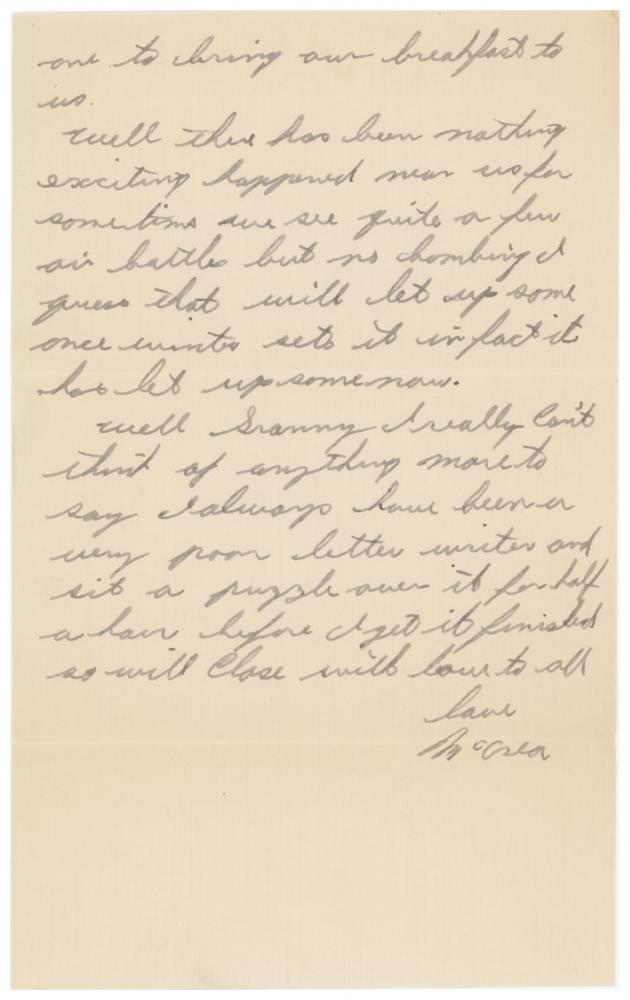 one to bring our breakfast to
us.
Well there has been nothing
exciting happened near us for
sometime we see quite a few
air battles but no bombing I
guess that will let up some
once winter sets it in fact it
has let up some now.
Well Granny I really Can't
think of anything more to
say I always have been a
very poor letter writer and
sit a puzzle over it for half
a hour before I get it finished
so will Close with love to all
love
McCrea